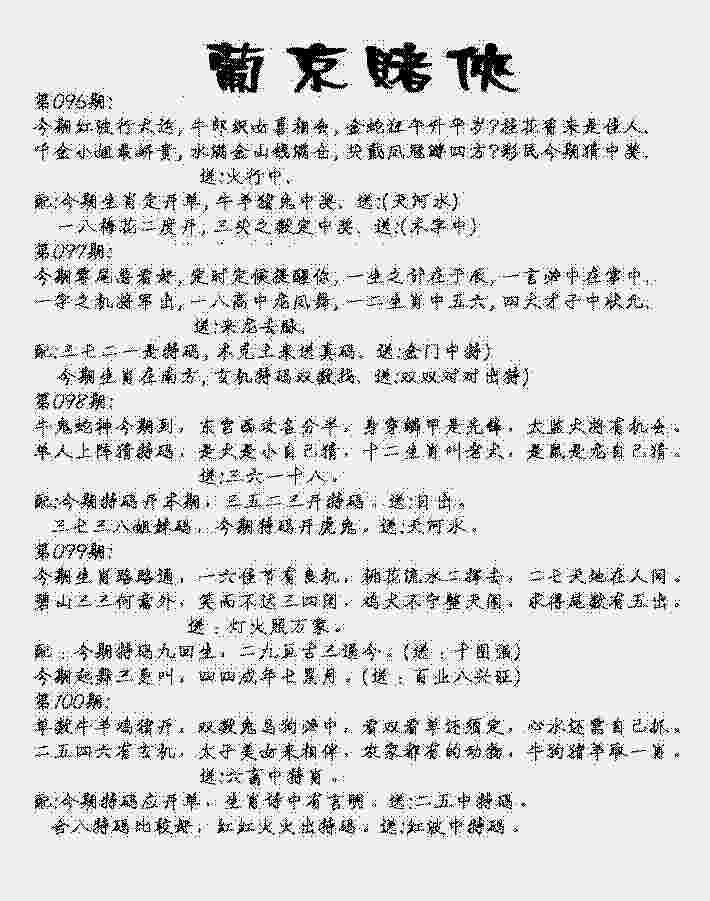 葡京赌侠
第096期:
今期红波行大运,牛郎织女喜相会,金蛇狂午升平岁?桂花看来是佳人、
千金小姐最娇贵,水满金山钱满仓,头戴凤冠蹲四方?彩民今期猜中奖、
送:火行中、
配:今期生肖定开单,牛羊猪兔中奖、送:(天河水)
一八梅花二度开,三头之数定中奖、送:(禾字中)
第097期:
今期零尾当看好,定时定候提醒你,一生之计在于辰,一言必中在掌中、
一字之机将军出,一八高中龙凤舞,一二生肖中五六,四大才子中状元、
送:来龙去脉。
配:三七二一是特码,木克土来送真码、送:金门中特)
今期生肖在南方,玄机特码双数找、送:双双对对出特)
第098期:
牛鬼蛇神今期到,东宫西攻名分平。身穿鳞甲是先锋,太监大将有机会。
单人上阵猜特码,是大是小自己猜,十二生肖叫老大,是鼠是龙自己猜。
送:三六一十八。
配:今期特码开本期,三五二三开特码。送:日出。
三七三八姐妹码,今期特码开虎兔。送:天河水。
第099期:
今期生肖路路通,一六佳节有良机,桃花流水二挥去,二七天地在人间。
碧山三三何意外,笑而不达三四闭,鸡犬不宁整天闹,求得尾数有五出。
送:灯火照万家。
配:今期特码九回生,二九亘古三通今。(送:千图强)
今期起舞三更叫,四四成年七黑月。(送:百业八兴旺)
第100期:
单数牛羊鸡猪开,双数兔马狗蛇中。看双看单还须定,心水还需自己抓。
二五四六有玄机,太子美女来相伴,农家都有的动物,牛狗猪羊取一肖。
送:六畜中特肖。
配:今期特码应开单,生肖诗中有言明。送:二五中特码。
合八特码比较好,红红火火出特码。送:红波中特码。